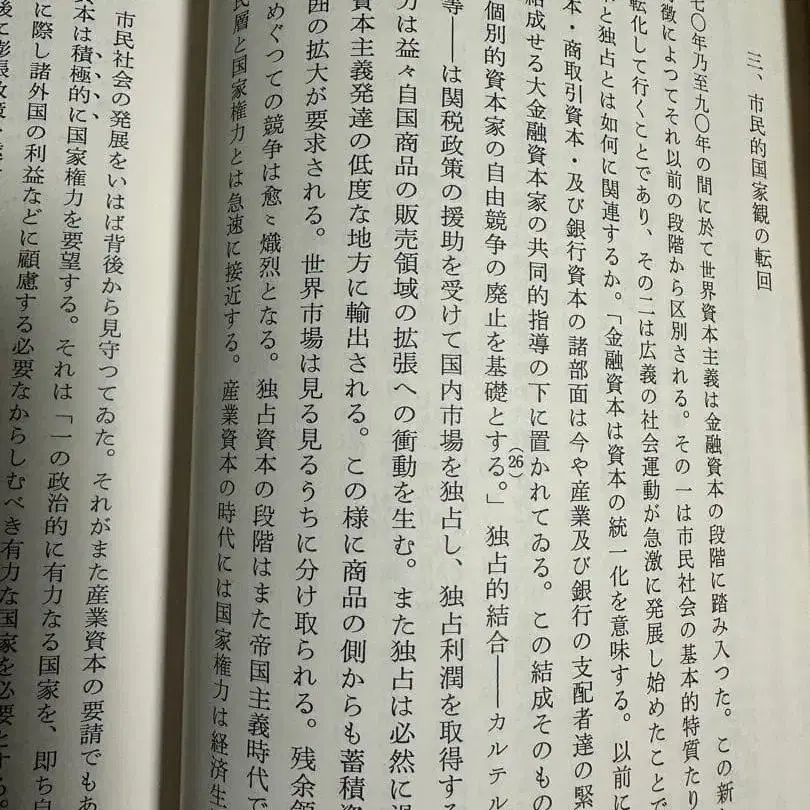 三、市民的国家観の転回
七〇年乃至九〇年の間に於て世界資本主義は金融資本の段階に踏み入つた。この新
徴によつてそれ以前の段階から区別される。その一は市民社会の基本的特質たり
転化して行くことであり、その二は広義の社会運動が急激に発展し始めたことで
と独占とは如何に関連するか。「金融資本は資本の統一化を意味する。以前に
本・商取引資本・及び銀行資本の諸部面は今や産業及び銀行の支配者達の緊
結成せる大金融資本家の共同的指導の下に置かれてゐる。この結成そのもの
個別的資本家の自由競争の廃止を基礎とする。」(26) 独占的結合――カルテル
等――は関税政策の援助を受けて国内市場を独占し、独占利潤を取得する
力は益々自国商品の販売領域の拡張への衝動を生む。また独占は必然に過
資本主義発達の低度な地方に輸出される。この様に商品の側からも蓄積資
囲の拡大が要求される。世界市場は見る見るうちに分け取られる。残余領
めぐつての競争は愈〻熾烈となる。独占資本の段階はまた帝国主義時代で
民層と国家権力とは急速に接近する。産業資本の時代には国家権力は経済生
市民社会の発展をいはば背後から見守つてゐた。それがまた産業資本の要請でもあ
資本は積極的に国家権力を要望する。それは「一の政治的に有力なる国家を、即ち自
に際し諸外国の利益などに顧慮する必要なからしむべき有力な国家を必要とする。
後て膨張政策